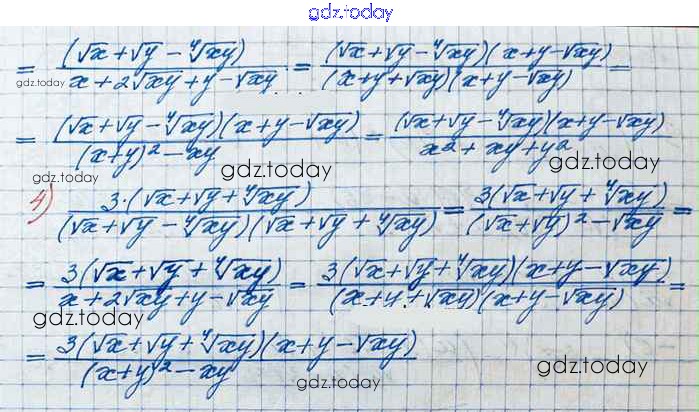 gdz.today
= (√x+√y-⁴√xy)/(x+2√xy+y-√xy) = (√x+√y-⁴√xy)(x+y-√xy)/(x+y+√xy)(x+y-√xy) =
gdz.today
gdz.today
= (√x+√y-⁴√xy)(x+y-√xy)/(x+y)²-xy = (√x+√y-⁴√xy)(x+y-√xy)/x²+xy+y²
gdz.today
gdz.today
gdz.today
4) 3·(√x+√y+⁴√xy)/(√x+√y-⁴√xy)(√x+√y+⁴√xy) = 3(√x+√y+⁴√xy)/(√x+√y)²-√xy =
= 3(√x+√y+⁴√xy)/x+2√xy+y-√xy = 3(√x+√y+⁴√xy)(x+y-√xy)/(x+y+√xy)(x+y-√xy) =
gdz.today
= 3(√x+√y+⁴√xy)(x+y-√xy)/(x+y)²-xy
gdz.today
gdz.today